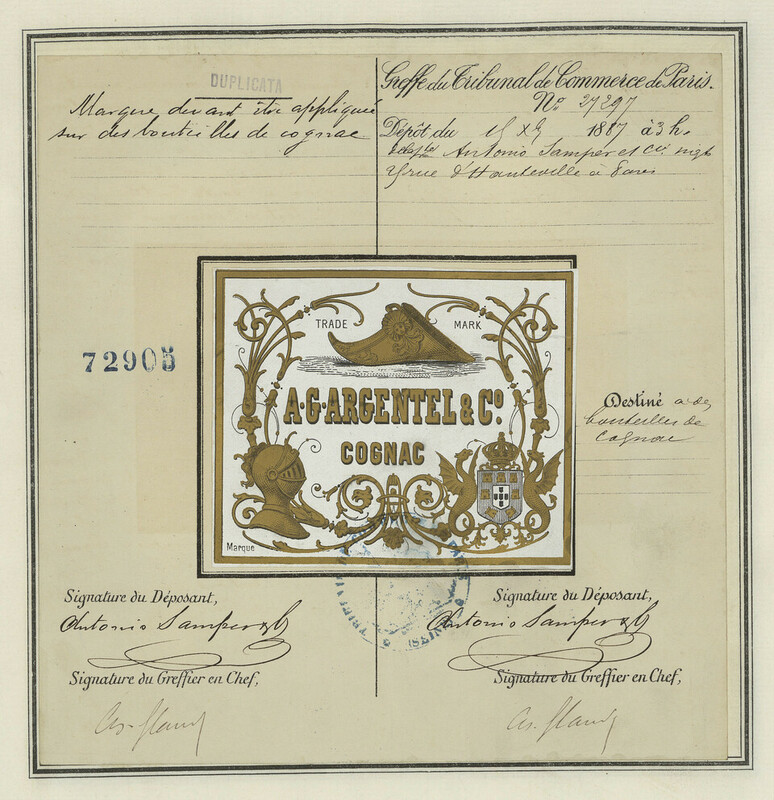 DUPLICATA
Marque devant être appliquée
sur des bouteilles de cognac
Greffe du Tribunal de Commerce de Paris.
No 27297
Dépôt du 15 Xbre 1887 à 3 h.
Antonio Samper et Cie
rue d'Hauteville à Paris
72905
TRADE MARK
A.G. ARGENTEL & Co.
COGNAC
Marque
Destiné à des
bouteilles de
cognac
Signature du Déposant,
Antonio Samper & C
Signature du Greffier en Chef,
Signature du Déposant,
Antonio Samper & C
Signature du Greffier en Chef,